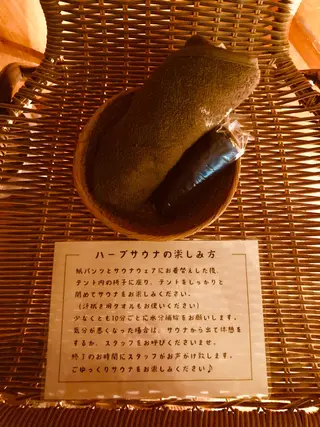 ハーブサウナの楽しみ方
紙パンツとサウナウェアにお着替えした後、
テント内の椅子に座り、テントをしっかりと
閉めてサウナをお楽しみください。
(汗拭き用タオルもお使いください)
少なくとも10分ごとに水分補給をお願いします。
気分が悪くなった場合は、サウナから出て休憩を
するか、スタッフをお呼びくださいませ。
終了のお時間にスタッフがお声がけ致します。
ごゆっくりサウナをお楽しみください♪